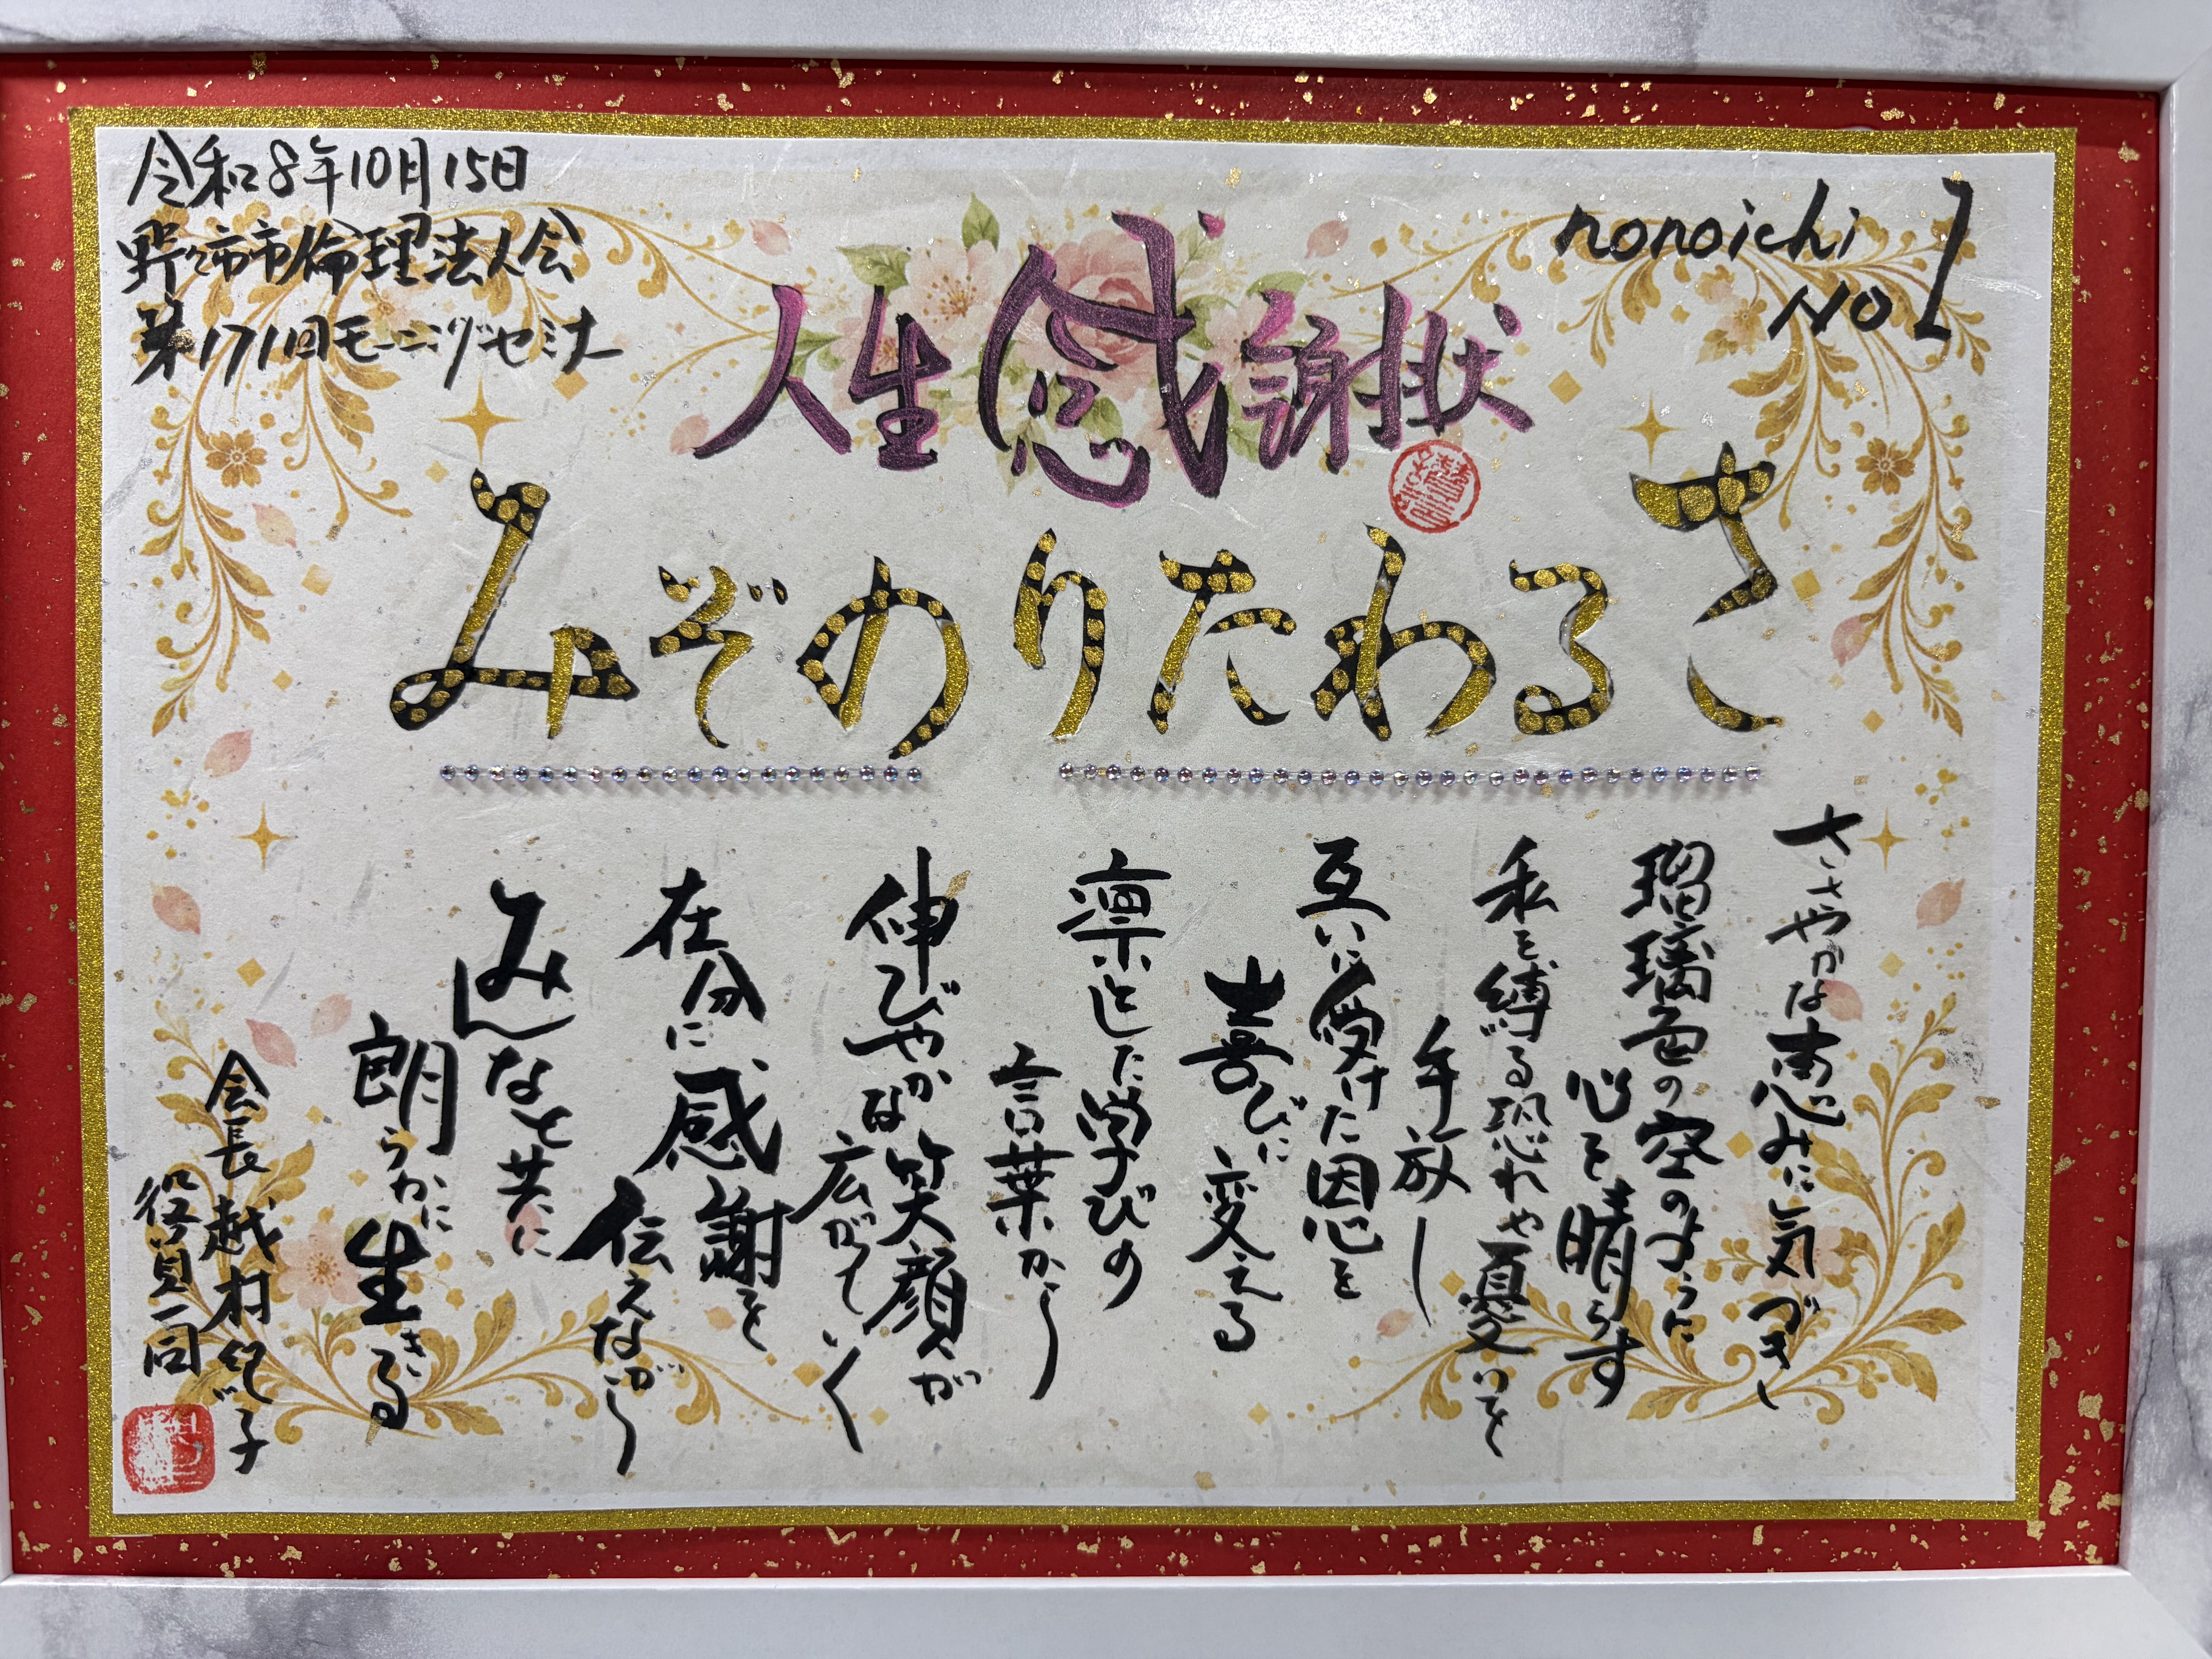 令和8年10月15日
野々市市倫理法人会
第171回モーニングセミナー
nonoichi
No1
人生感謝状
さるわたりのぞみ
ささやかな恵みに気づき
瑠璃色の空のように
心を晴らす
私を縛る恐れや憂いを
手放し
互いに受けた恩を
喜びに変える
凛とした学びの
言葉から
伸びやかな笑顔が
広がていく
存分に感謝を
伝えながら
みんなと共に
朗らかに生きる
会長 越村紀子
役員一同